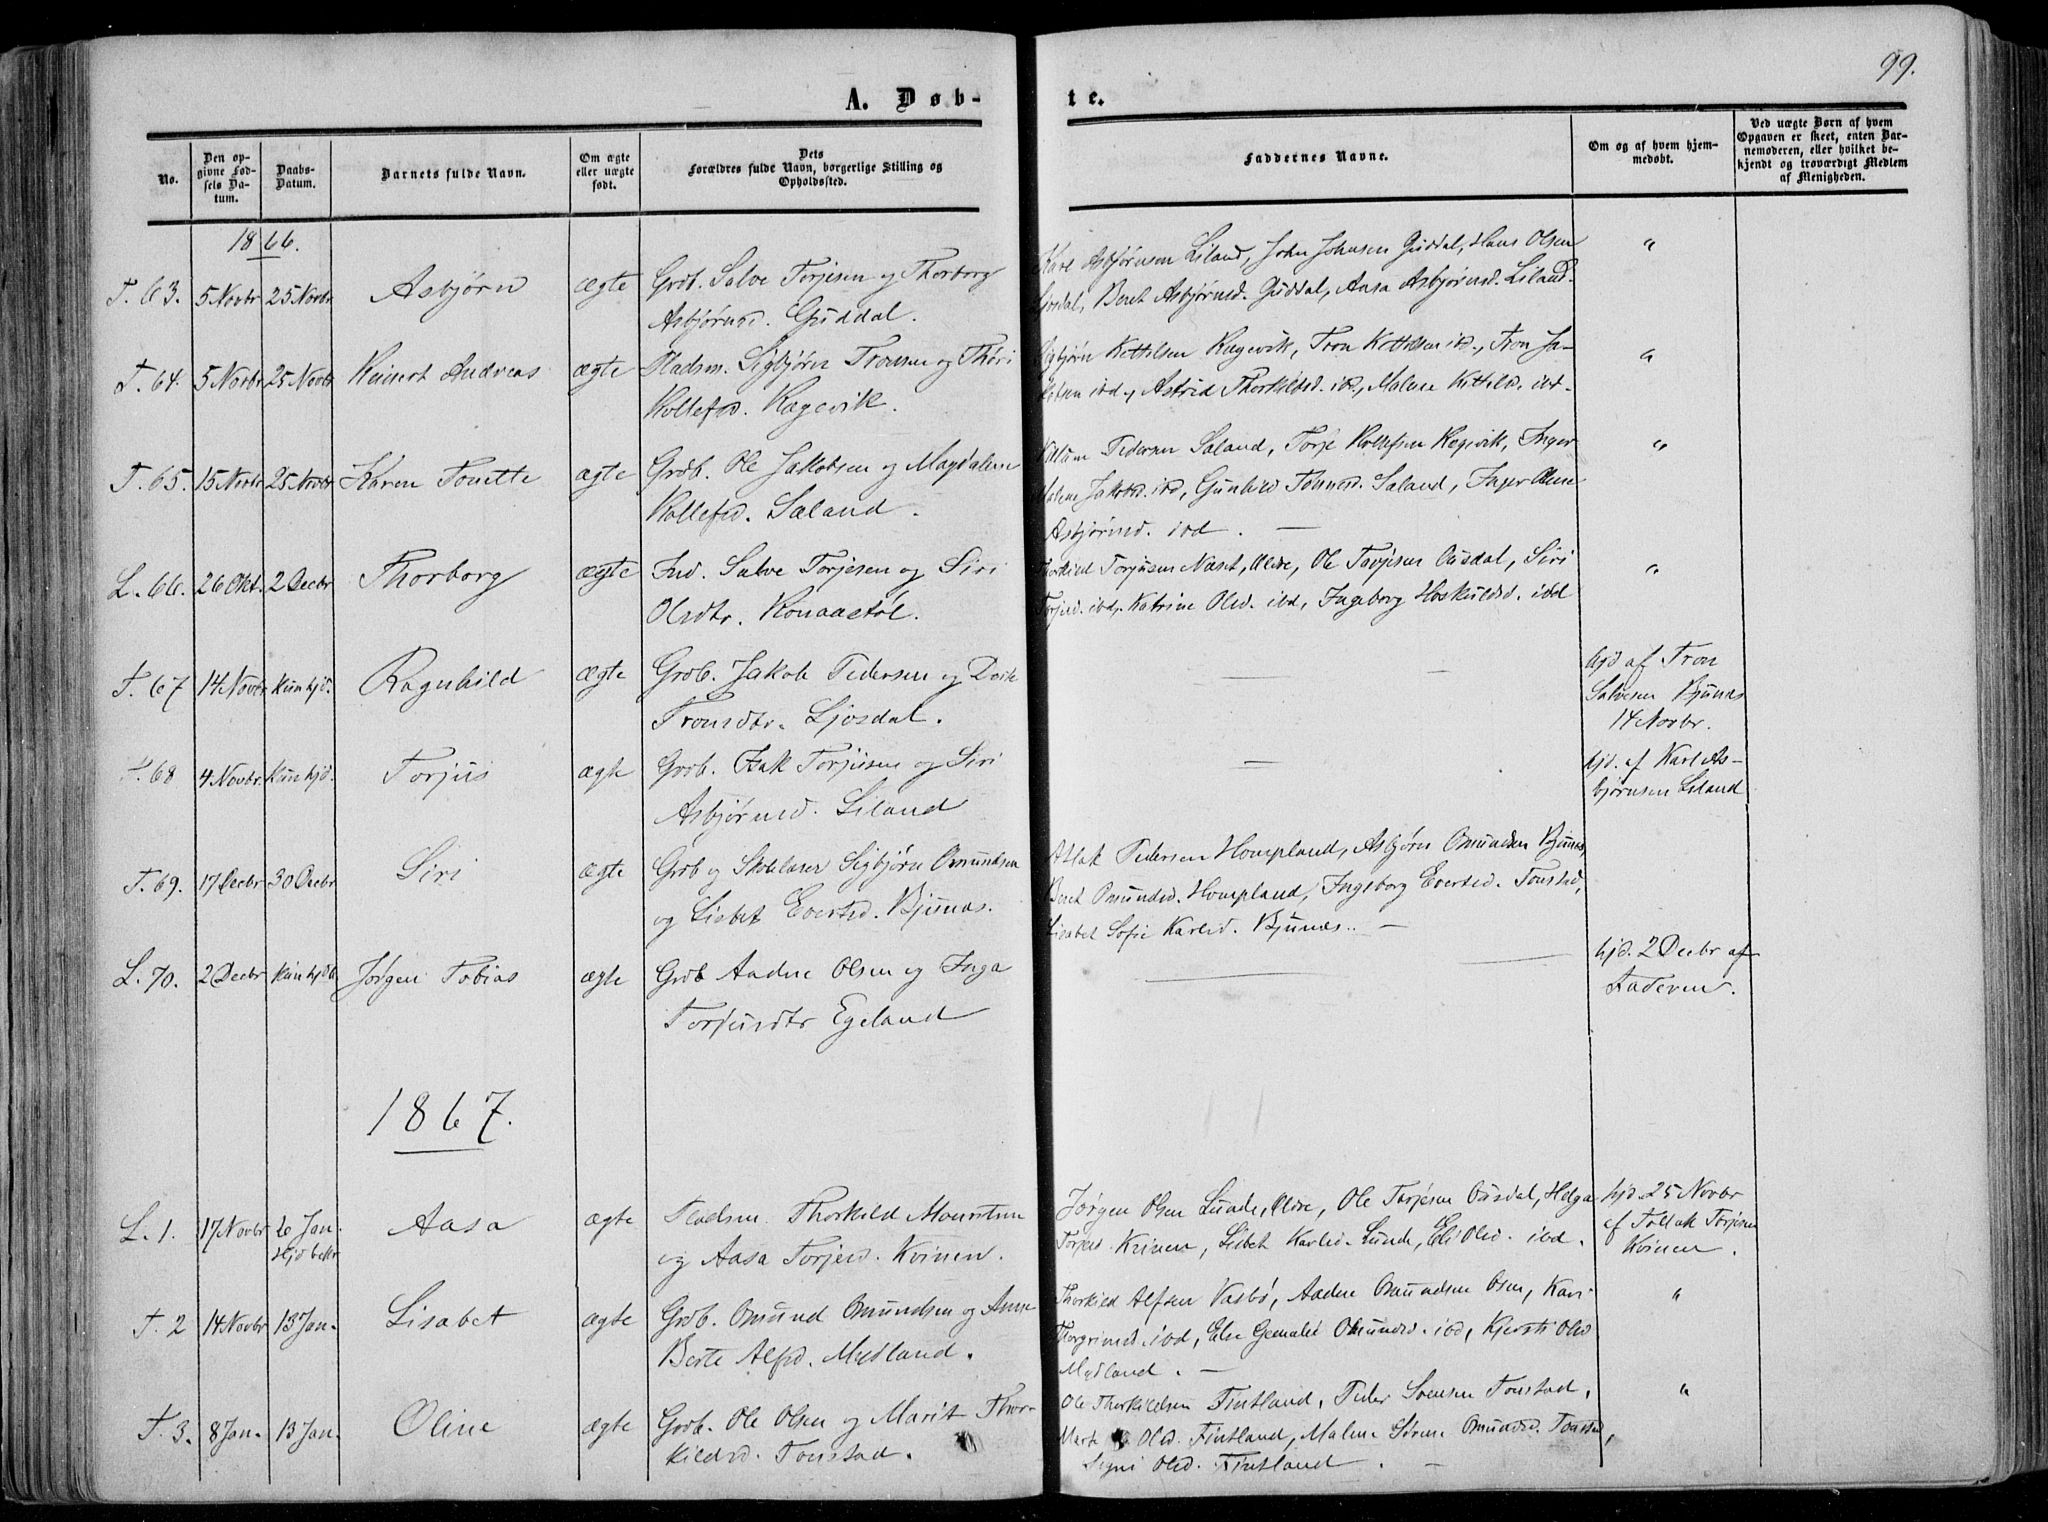 99.
A. Døb-
te.
No.
Den op-
givne Fød-
sels Da-
tum.
Daabs-
Datum.
Barnets fulde Navn.
Om ægte
eller uægte
født.
Dets
Forældres fulde Navn, borgerlige Stilling og
Opholdssted.
Faddernes Navne.
Om og af hvem hjem-
medøbt.
Ved uægte Børn af hvem
Opgaven er skeet, enten Bar-
nemoderen, eller hvilket be-
kjendt og troværdigt Medlem
af Menigheden.
1866.
T. 63. 5 Novbr 25 Novbr Asbjørn ægte Grdb. Salve Torjesen og Thorborg
Asbjørnsd. Guddal.
Asbjørnsen Liland, John Johnsen Guddal, Hans Olsen "
Josdal, Beret Asbjørnsd. Guddal, Aasa Asbjørnsd. Liland.
T. 64. 5 Novbr 25 Novbr Reinert Andreas ægte Pladsm. Sigbjørn Tronsen og Thori
Rollefsd. Regevik.
Sigbjørn Kittelsen Regevik, Tron Kittelsen ibd., Tron Ja- "
kobsen ibd., Astrid Thorkildsd. ibd., Malene Kittelsd. ibd.
T. 65. 15 Novbr 25 Novbr Karen Tonette ægte Grdb. Ole Jakobsen og Magdalene
Rollefsd. Sæland.
Pedersen Sæland, Torje Rollefsen Regevik, Inger "
Malene Jakobsd. ibd, Gunhild Tønnesd. Sæland, Inger Olene
Asbjørnsd. ibd. —
L. 66. 26 Okt. 2 Decbr Thorborg ægte Ind. Salve Torjesen og Siri
Olsdtr. Konaastøl.
Thorkild Torjusen Næset, Øvre, Ole Torjesen Ousdal, Siri "
Torjesd. ibd., Katrine Olsd. ibd, Ingeborg Hoskuldsd. ibd
T. 67 14 Novbr Kun hjd. Ragnhild ægte Grdb. Jakob Pedersen og Dorte
Tronsdtr. Ljosdal.
— —
hjd af Tron
Salvesen Bjunes
14 Novbr.
T. 68 4 Novbr. Kun hjd. Torjus ægte Grdb. Isak Torjusen og Siri
Asbjørnsd. Liland
—
hjd. af Karl As-
bjørnsen Liland
T. 69. 17 Decbr 30 Decbr Siri ægte Grdb og Skolelærer Sigbjørn Omundsen
og Lisbet Evertsd. Bjunes.
Atlak Pedersen Hompland, Asbjørn Omundsen Bjunes,
Beret Omundsd. Hompland, Ingeborg Evertsd. Tonstad,
Lisabet Sofie Karlsd. Bjunes. —
L. 70. 2 Decbr Kun hjdb. Jørgen Tobias ægte Grdb Aadne Olsen og Inga
Torjusdtr Egeland
— —
hjd. 2 Decbr af
Faderen.
1867.
L. 1. 17 Novbr 6 Jan. Aasa ægte Pladsm. Thorkild Mouritsen
Hjd bekr og Aasa Torjesd. Kvinen.
Jørgen Olsen Lunde, Øvre, Ole Torjesen Ousdal, Helga
Torjesd. Kvinen, Lisbet Karlsd. Lunde, Eli Olsd. ibd.
hjd. 25 Novbr
af Tollak Torjesen
Kvinen.
T. 2 14 Novbr 13 Jan. Lisabet ægte Grdb. Omund Omundsen og Anne
Berte Alfsd. Mydland.
Thorkild Alfsen Vasbø, Aadne Omundsen Osen, Kari "
Thorgrimsd. ibd, Else Omundsd. ibd, Kjersti Olsd
Mydland. —
T. 3. 8 Jan. 13 Jan. Oline ægte Grdb. Ole Olsen og Marit Thor-
kildsd. Tonstad.
Ole Thorkildsen Fintland, Peder Svensen Tonstad, "
Olsd. Fintland, Malene Sirene Omundsd. Tonstad,
Signi Olsd. Fintland. —